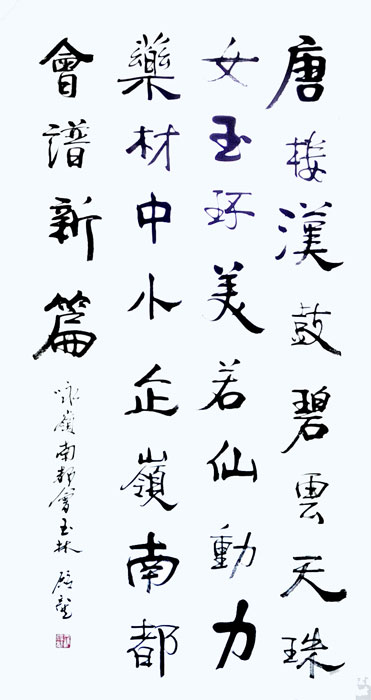 唐楼漢鼓碧雲天珠
女玉环美若仙動力
藥材中小企嶺南都
會谱新篇
咏嶺南都會玉林